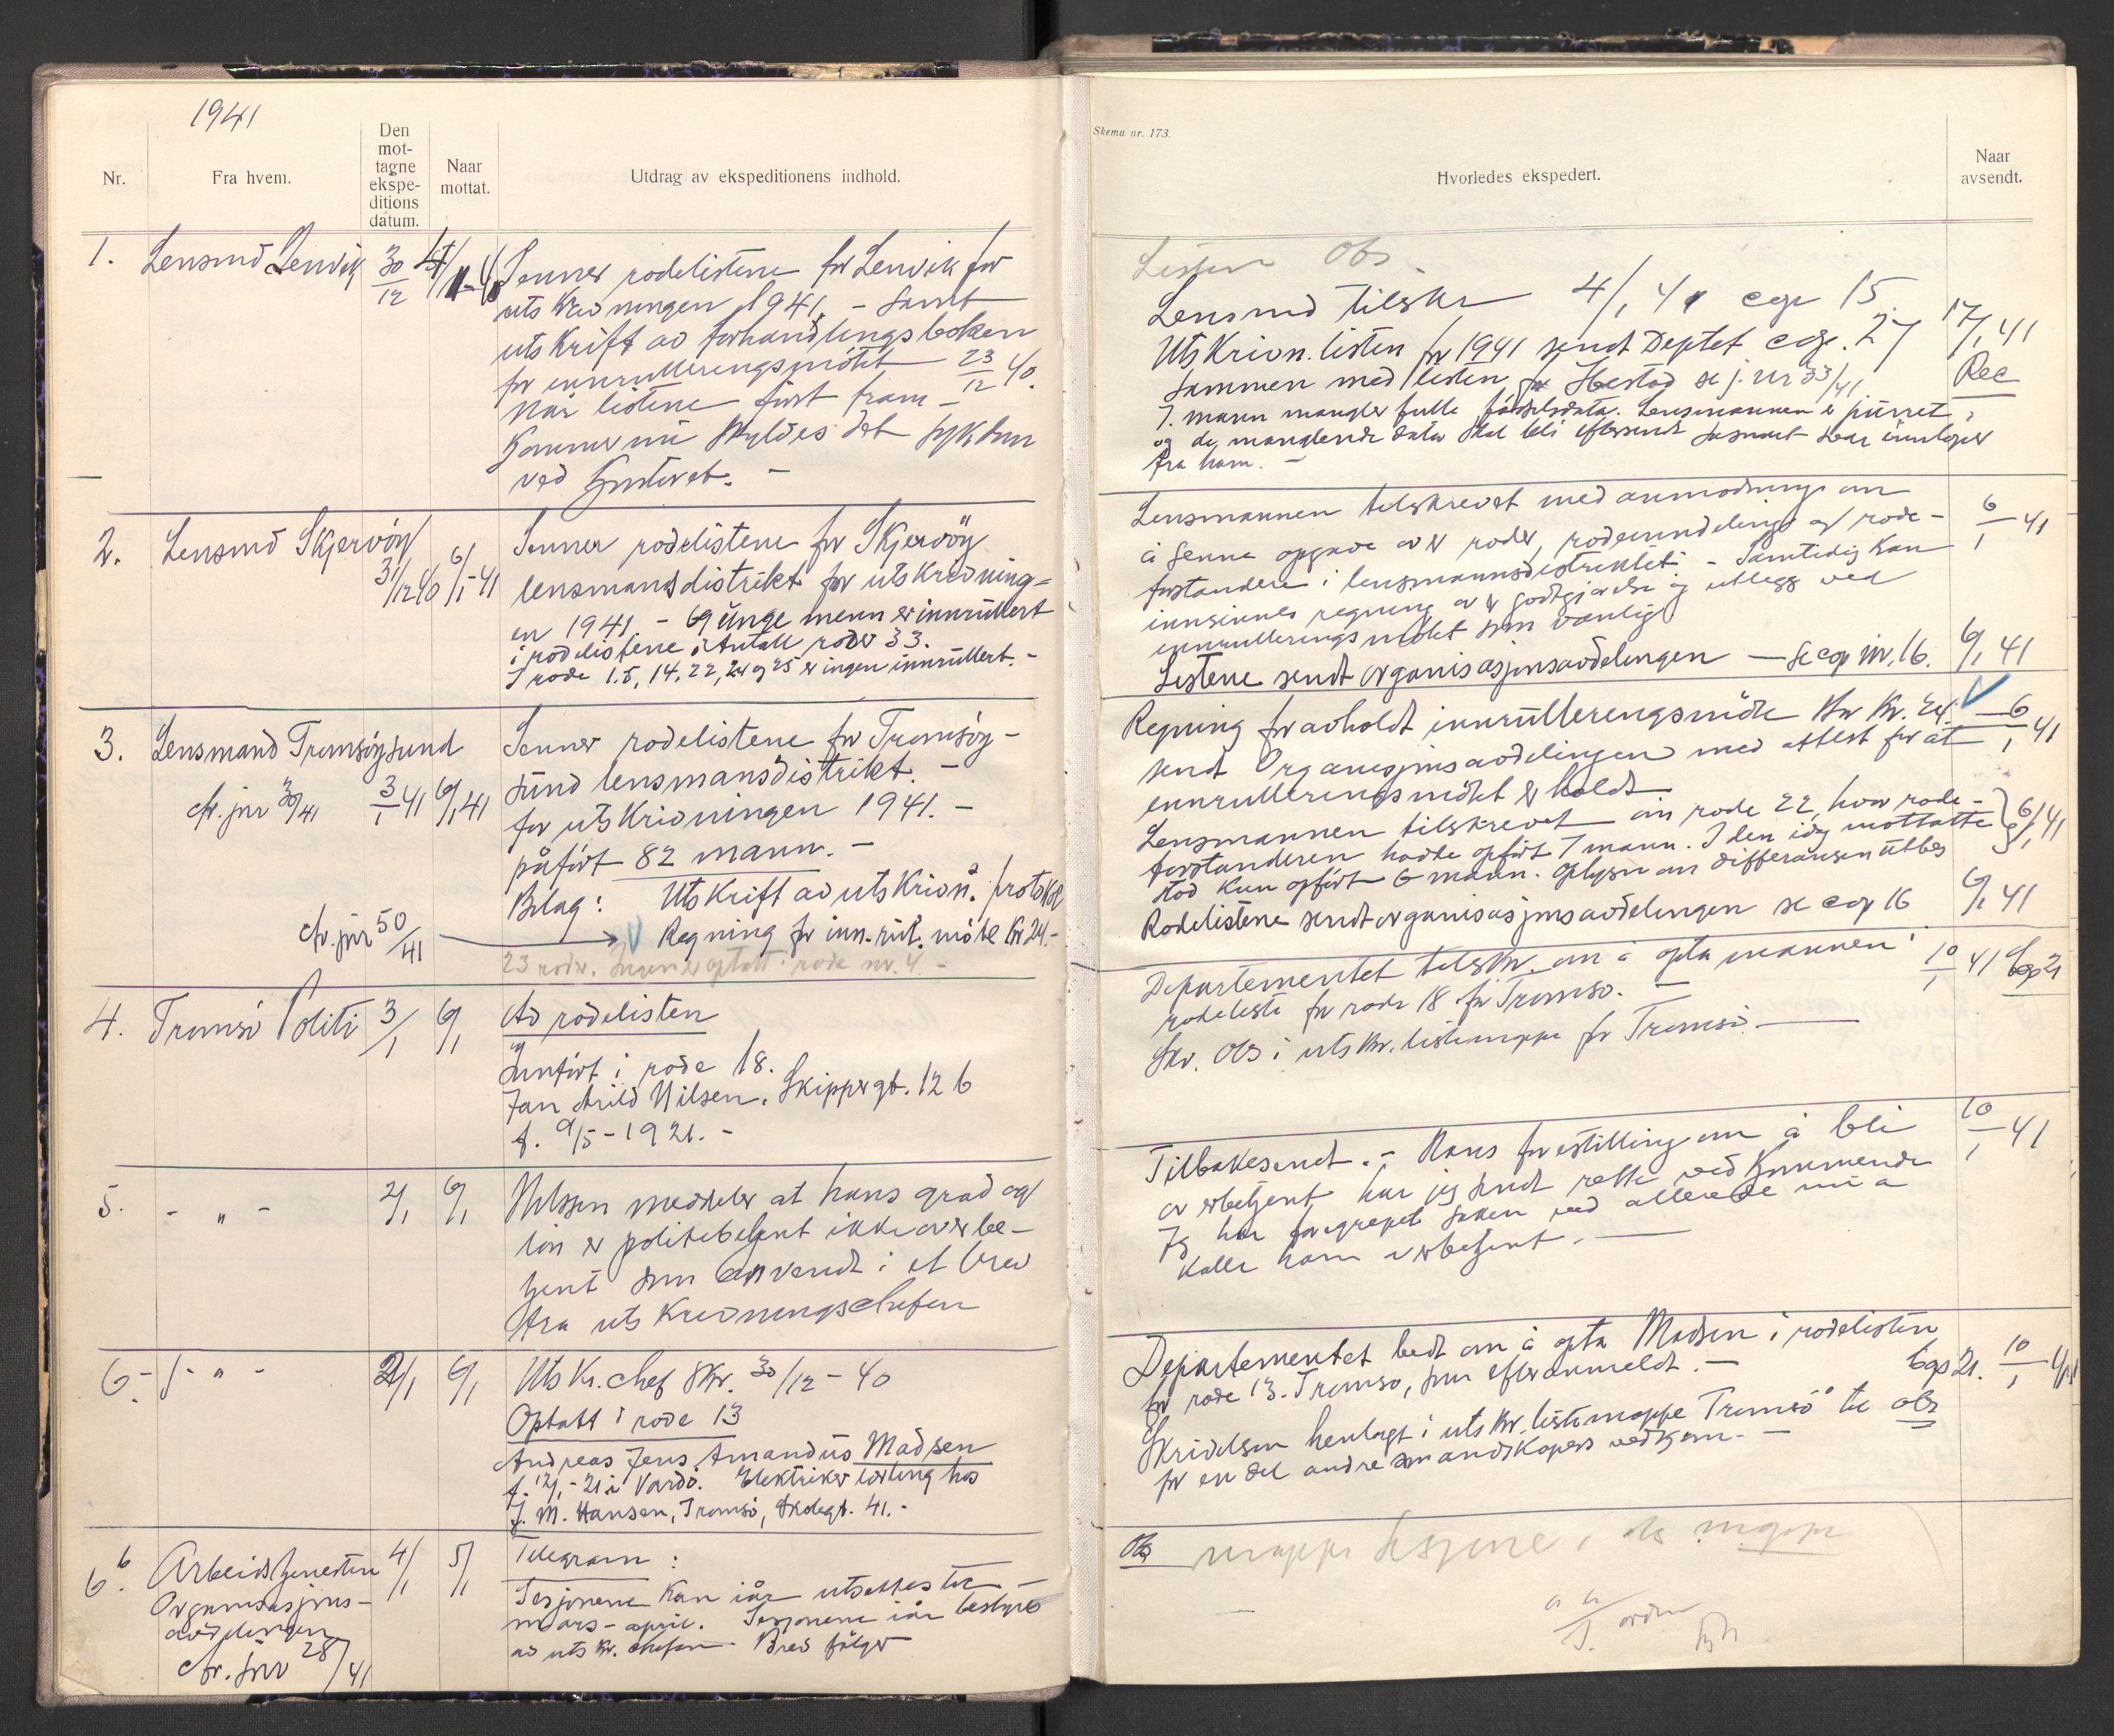 1941
Nr.
Fra hvem.
Den
mot-
tagne
ekspe-
ditions
datum.
Naar
mottat.
Utdrag av ekspeditionens indhold.
1. Lensmd Lenvik 30/12 4/1-41 Senner rodelistene for Lenvik for
utskrivningen 1941, - samt
utskrift av forhandlingsboken
for innrulleringsmötet 23/12 40.
Når listene först fram-
kommer nu skyldes det sykdom
ved kontoret. -
2. Lensmd Skjervöy 31/12 40 6/1-41 Senner rodelistene for Skjervöy
lensmansdistrikt for utskrivning-
en 1941 - 69 unge menn er innrullert
i rodelistene. Antall roder 33.
I rode 1.5, 14, 22, 24 og 25 er ingen innrullert. -
3. Lensmand Tromsöysund Senner rodelistene for Tromsöy-
cfr. jnr 30/41 3/1 41 6/1 41 sund lensmansdistrikt. -
for utskrivningen 1941. -
påfört 82 mann. -
Bilag: Utskrift av utskrivn. protokol
cfr. jnr 50/41 Regning for inn. rul. möte Kr 24.-
23 roder. Ingen er optatt i rode nr. 4. -
4. Tromsö Politi 3/1 6/1 Ad rodelisten
Innfört i rode 18.
Jan Arild Nilsen. Skippergt. 12 b
f. 9/5 - 1921. -
5. - " - 4/1 6/1 Nilssen meddeler at hans grad og
lön er politibetjent ikke overbe-
tjent som anvendt i et brev
fra utskrivningschefen
6. - " - 2/1 6/1 Utskr. chef skr. 30/12 - 40
Optatt i rode 13
Andreas Jens Amandus Madsen
f. - 21 i Vardö. Elektriker lærling hos
J. M. Hansen, Tromsö, Skolegt. 41. -
6b. Arbeidstjenesten 4/1 5/1 Telegram:
Organisasjons- Sesjonene kan iår utsettes til
avdelingen mars - april. Sesjonene iår bestyres
cfr. jnr 28/41 av utskr. chefen. Brev fölger
Skema nr. 173.
Hvorledes ekspedert.
Naar
avsendt.
Listen Obs.
Lensmd tilskr 4/1 41 cop 15.
Utskrivn. listen for 1941 sendt Deptet cop. 27 17/1 41
sammen med listen for Ibestad se j. nr 33/41 Rec
7. mann mangler fulle födselsdata. Lensmannen er purret,
og de manglende data skal bli eftersendt såsnart svar innlöper
fra ham. -
Lensmannen tilskrevet med anmodning om 6/1 41
å senne opgave over roder, rodeinndeling og rode-
forstandere i lensmannsdistriktet - Samtidig kan
innsinnes regning over godtgjörelse og utlegg ved
innrulleringsmötet som vanlig
Listene sendt organisasjonsavdelingen - se cop nr. 16. 6/1 41
Regning for avholdt innrulleringsmöte stor Kr. 24. 6/1 41
sendt Organisasjonsavdelingen med attest for at
innrulleringsmötet er holdt
Lensmannen tilskrevet om rode 22, hvor rode-
forstanderen hadde opfört 7 mann. I den idag mottatte 6/1 41
stod kun opfört 6 mann. Oplysn om differansen utbes
Rodelistene sendt organisasjonsavdelingen se cop 16 6/1 41
Departementet tilskr. om å opta mannen i 10/1 41 Cop 21
rodeliste for rode 18 for Tromsö. -
Skr. Obs i utskr. listemappe for Tromsö. -
Tilbakesendt. - Hans forestilling om å bli 10/1 41
overbetjent har jeg sendt rette vedkommende
Jeg har foregrepet saken ved allerede nu å
kalle ham overbetjent. -
Departementet bedt om å opta Madsen i rodelisten
for rode 13. Tromsö, som efteranmeldt. - Cop 21. 10/1 41
Skrivelsen henlagt i utskr. listemappe Tromsö til obs
for en del andre mandskapers vedkom. -
Obs mappe sesjone i obs mappe